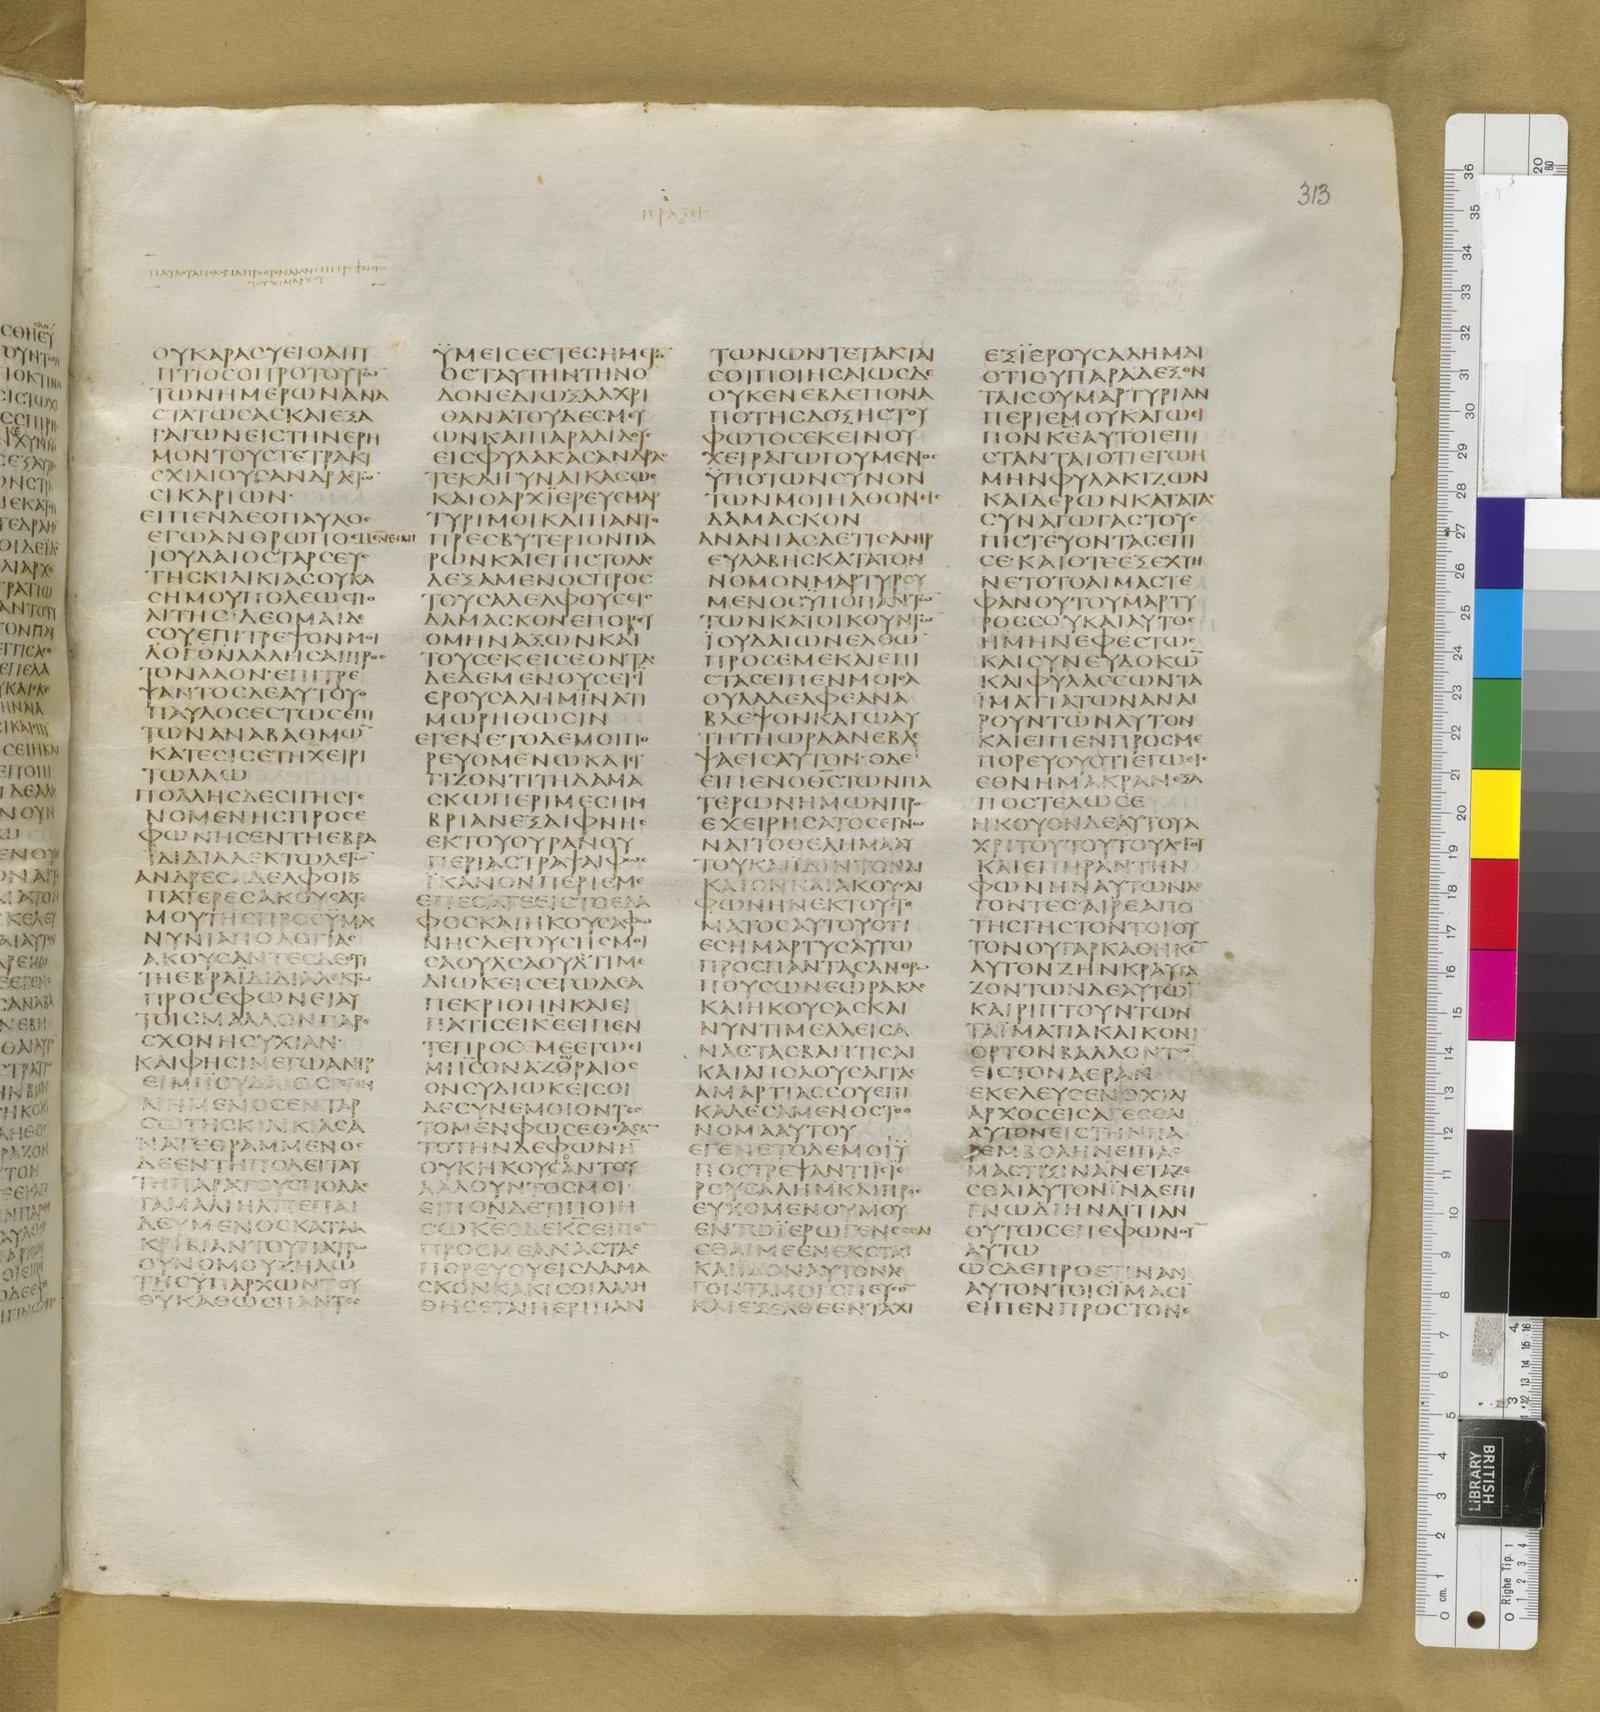 313
ΠΡΑΞΕΙϹ
ΟΥΚΑΡΑϹΥΕΙΟΑΙΓΥ
ΠΤΙΟϹΟΠΡΟΤΟΥΤΩ̅
ΤΩΝΗΜΕΡΩΝΑΝΑ
ϹΤΑΤΩϹΑϹΚΑΙΕΞΑ
ΓΑΓΩΝΕΙϹΤΗΝΕΡΗ
ΜΟΝΤΟΥϹΤΕΤΡΑΚΙ
ϹΧΙΛΙΟΥϹΑΝΔΡΑϹΤΩ̅
ϹΙΚΑΡΙΩΝ·
ΕΙΠΕΝΔΕΟΠΑΥΛΟϹ
ΕΓΩΑΝΘΡΩΠΟϹΜΕΝΕΙΜΙ
ΙΟΥΔΑΙΟϹΤΑΡϹΕΥϹ
ΤΗϹΚΙΛΙΚΙΑϹΟΥΚΑ
ϹΗΜΟΥΠΟΛΕΩϹΠΟ
ΛΙΤΗϹ·ΔΕΟΜΑΙΔΕ
ϹΟΥΕΠΙΤΡΕΨΟΝΜΟΙ
ΛΟΓΟΝΛΑΛΗϹΑΙΠΡΟϹ
ΤΟΝΛΑΟΝ·ΕΠΙΤΡΕ
ΨΑΝΤΟϹΔΕΑΥΤΟΥΟ
ΠΑΥΛΟϹΕϹΤΩϹΕΠΙ
ΤΩΝΑΝΑΒΑΘΜΩ̅
ΚΑΤΕϹΙϹΕΤΗΧΕΙΡΙ
ΤΩΛΑΩ
ΠΟΛΛΗϹΔΕϹΙΓΗϹΓΕ
ΝΟΜΕΝΗϹΠΡΟϹΕ
ΦΩΝΗϹΕΝΤΗΕΒΡΑ
ΪΔΙΔΙΑΛΕΚΤΩΛΕΓΩ̅
ΑΝΔΡΕϹΑΔΕΛΦΟΙΚ
ΠΑΤΕΡΕϹΑΚΟΥϹΑΤΕ
ΜΟΥΤΗϹΠΡΟϹΥΜΑ
ΝΥΝΙΑΠΟΛΟΓΙΑϹ
ΑΚΟΥϹΑΝΤΕϹΔΕΟΤΙ
ΤΗΕΒΡΑΪΔΙΔΙΑΛΕΚΤΩ
ΠΡΟϹΕΦΩΝΕΙΑΥ
ΤΟΙϹΜΑΛΛΟΝΠΑΡΕ
ϹΧΟΝΗϹΥΧΙΑΝ·
ΚΑΙΦΗϹΙΝΕΓΩΑΝΗΡ
ΕΙΜΙΙΟΥΔΑΙΟϹΓΕΓΕΝ
ΝΗΜΕΝΟϹΕΝΤΑΡ
ϹΩΤΗϹΚΙΛΙΚΙΑϹΑ
ΝΑΤΕΘΡΑΜΜΕΝΟϹ
ΔΕΕΝΤΗΠΟΛΕΙΤΑΥ
ΤΗΠΑΡΑΤΟΥϹΠΟΔΑϹ
ΓΑΜΑΛΙΗΛΠΕΠΑΙ
ΔΕΥΜΕΝΟϹΚΑΤΑΑ
ΚΡΙΒΙΑΝΤΟΥΠΑΤΡΩ
ΟΥΝΟΜΟΥΖΗΛΩ
ΤΗϹΥΠΑΡΧΩΝΤΟΥ
Θ̅Υ̅ΚΑΘΩϹΠΑΝΤΕϹ
ΫΜΕΙϹΕϹΤΕϹΗΜΕΡΟ̅
ΟϹΤΑΥΤΗΝΤΗΝΟ
ΔΟΝΕΔΙΩΞΑΑΧΡΙ
ΘΑΝΑΤΟΥΔΕϹΜΕΥ
ΩΝΚΑΙΠΑΡΑΔΙΔΟΥϹ
ΕΙϹΦΥΛΑΚΑϹΑΝΔΡΑϹ
ΤΕΚΑΙΓΥΝΑΙΚΑϹΩϹ
ΚΑΙΟΑΡΧΪΕΡΕΥϹΜΑΡ
ΤΥΡΙΜΟΙΚΑΙΠΑΝΤΟ
ΠΡΕϹΒΥΤΕΡΙΟΝΠΑ
ΡΩΝΚΑΙΕΠΙϹΤΟΛΑϹ
ΔΕΞΑΜΕΝΟϹΠΡΟϹ
ΤΟΥϹΑΔΕΛΦΟΥϹΕΙϹ
ΔΑΜΑϹΚΟΝΕΠΟΡΕΥ
ΟΜΗΝΑΞΩΝΚΑΙ
ΤΟΥϹΕΚΕΙϹΕΟΝΤΑϹ
ΔΕΔΕΜΕΝΟΥϹΕΙϹΪ
ΕΡΟΥϹΑΛΗΜΪΝΑΤΙ
ΜΩΡΗΘΩϹΙΝ
ΕΓΕΝΕΤΟΔΕΜΟΙΠΟ
ΡΕΥΟΜΕΝΩΚΑΙΕΓ
ΓΙΖΟΝΤΙΤΗΔΑΜΑ
ϹΚΩΠΕΡΙΜΕϹΗΜ
ΒΡΙΑΝΕΞΑΙΦΝΗϹ
ΕΚΤΟΥΟΥΡΑΝΟΥ
ΠΕΡΙΑϹΤΡΑΨΑΙΦΩϹ
ΪΚΑΝΟΝΠΕΡΙΕΜΕ
ΕΠΕϹΑΤΕΕΙϹΤΟΕΔΑ
ΦΟϹΚΑΙΗΚΟΥϹΑΦΩ
ΝΗϹΛΕΓΟΥϹΗϹΜΟΙ
ϹΑΟΥΛϹΑΟΥΛΤΙΜΕ
ΔΙΩΚΕΙϹΕΓΩΔΕΑ
ΠΕΚΡΙΘΗΝΚΑΙΕΙ
ΠΑΤΙϹΕΙΚ̅Ε̅ΕΙΠΕΝ
ΤΕΠΡΟϹΕΜΕΕΓΩΕΙ
ΜΙΙ̅Ϲ̅ΟΝΑΖΩΡΑΙΟϹ
ΟΝϹΥΔΙΩΚΕΙϹΟΙ
ΔΕϹΥΝΕΜΟΙΟΝΤΕϹ
ΤΟΜΕΝΦΩϹΕΘΕΑϹΑ̅
ΤΟΤΗΝΔΕΦΩΝΗ̅
ΟΥΚΗΚΟΥϹΑΝΤΟΥ
ΛΑΛΟΥΝΤΟϹΜΟΙ·
ΕΙΠΟΝΔΕΤΙΠΟΙΗ
ϹΩΚ̅Ε̅ΟΔΕΚ̅Ϲ̅ΕΙΠΕ̅
ΠΡΟϹΜΕΑΝΑϹΤΑϹ
ΠΟΡΕΥΟΥΕΙϹΔΑΜΑ
ϹΚΟΝΚΑΚΙϹΟΙΛΑΛΗ
ΘΗϹΕΤΑΙΠΕΡΙΠΑΝ
ΤΩΝΩΝΤΕΤΑΚΤΑΙ
ϹΟΙΠΟΙΗϹΑΙΩϹΔΕ
ΟΥΚΕΝΕΒΛΕΠΟΝΑ
ΠΟΤΗϹΔΟΞΗϹΤΟΥ
ΦΩΤΟϹΕΚΕΙΝΟΥ
ΧΕΙΡΑΓΩΓΟΥΜΕΝΟϹ
ΫΠΟΤΩΝϹΥΝΟΝ
ΤΩΝΜΟΙΗΛΘΟΝΕΙϹ
ΔΑΜΑϹΚΟΝ
ΑΝΑΝΙΑϹΔΕΤΙϹΑΝΗΡ
ΕΥΛΑΒΗϹΚΑΤΑΤΟΝ
ΝΟΜΟΝΜΑΡΤΥΡΟΥ
ΜΕΝΟϹΫΠΟΠΑΝΤΩ̅
ΤΩΝΚΑΤΟΙΚΟΥΝΤΩ̅
ΙΟΥΔΑΙΩΝΕΛΘΩ̅
ΠΡΟϹΕΜΕΚΑΙΕΠΙ
ϹΤΑϹΕΙΠΕΝΜΟΙϹΑ
ΟΥΛΑΔΕΛΦΕΑΝΑ
ΒΛΕΨΟΝΚΑΓΩΑΥ
ΤΗΤΗΩΡΑΑΝΕΒΛΕ
ΨΑΕΙϹΑΥΤΟΝ·ΟΔΕ
ΕΙΠΕΝΟΘ̅Ϲ̅ΤΩΝΠΑ
ΤΕΡΩΝΗΜΩΝΠΡΟ
ΕΧΕΙΡΗϹΑΤΟϹΕΓΝΩ
ΝΑΙΤΟΘΕΛΗΜΑΑΥ
ΤΟΥΚΑΙΪΔΙΝΤΟΝΔΙ
ΚΑΙΟΝΚΑΙΑΚΟΥϹΑΙ
ΦΩΝΗΝΕΚΤΟΥϹΤΟ
ΜΑΤΟϹΑΥΤΟΥΟΤΙ
ΕϹΗΜΑΡΤΥϹΑΥΤΩ
ΠΡΟϹΠΑΝΤΑϹΑΝΘΡΩ
ΠΟΥϹΩΝΕΩΡΑΚΑϹ
ΚΑΙΗΚΟΥϹΑϹΚΑΙ
ΝΥΝΤΙΜΕΛΛΕΙϹΑ
ΝΑϹΤΑϹΒΑΠΤΙϹΑΙ
ΚΑΙΑΠΟΛΟΥϹΑΙΤΑϹ
ΑΜΑΡΤΙΑϹϹΟΥΕΠΙ
ΚΑΛΕϹΑΜΕΝΟϹΤΟΟ
ΝΟΜΑΑΥΤΟΥ
ΕΓΕΝΕΤΟΔΕΜΟΙΫ
ΠΟϹΤΡΕΨΑΝΤΙΕΙϹΪΕ
ΡΟΥϹΑΛΗΜΚΑΙΠΡΟϹ
ΕΥΧΟΜΕΝΟΥΜΟΥ
ΕΝΤΩΪΕΡΩΓΕΝΕϹΘΑΙ
ϹΘΑΙΜΕΕΝΕΚϹΤΑϹΙ
ΚΑΙΪΔΟΝΑΥΤΟΝΛΕ
ΓΟΝΤΑΜΟΙϹΠΕΥϹΟ̅
ΚΑΙΕΞΕΛΘΕΕΝΤΑΧΙ
ΕΞΪΕΡΟΥϹΑΛΗΜΔΙ
ΟΤΙΟΥΠΑΡΑΔΕΞΟΝ
ΤΑΙϹΟΥΜΑΡΤΥΡΙΑΝ
ΠΕΡΙΕΜΟΥΚΑΓΩΕΙ
ΠΟΝΚ̅Ε̅ΑΥΤΟΙΕΠΙ
ϹΤΑΝΤΑΙΟΤΙΕΓΩΗ
ΜΗΝΦΥΛΑΚΙΖΩΝ
ΚΑΙΔΕΡΩΝΚΑΤΑΤΑϹ
ϹΥΝΑΓΩΓΑϹΤΟΥϹ
ΠΙϹΤΕΥΟΝΤΑϹΕΠΙ
ϹΕ·ΚΑΙΟΤΕΕΞΕΧΥΝ
ΝΕΤΟΤΟΑΙΜΑϹΤΕ
ΦΑΝΟΥΤΟΥΜΑΡΤΥ
ΡΟϹϹΟΥΚΑΙΑΥΤΟϹ
ΗΜΗΝΕΦΕϹΤΩϹ
ΚΑΙϹΥΝΕΥΔΟΚΩ̅
ΚΑΙΦΥΛΑϹϹΩΝΤΑ
ΪΜΑΤΙΑΤΩΝΑΝΑΙ
ΡΟΥΝΤΩΝΑΥΤΟΝ
ΚΑΙΕΙΠΕΝΠΡΟϹΜΕ
ΠΟΡΕΥΟΥΟΤΙΕΓΩΕΙϹ
ΕΘΝΗΜΑΚΡΑΝΕΞΑ
ΠΟϹΤΕΛΩϹΕ
ΗΚΟΥΟΝΔΕΑΥΤΟΥΑ
ΧΡΙΤΟΥΤΟΥΤΟΥΛΟΓΟΥ
ΚΑΙΕΠΗΡΑΝΤΗΝ
ΦΩΝΗΝΑΥΤΩΝΛΕ
ΓΟΝΤΕϹΑΙΡΕΑΠΟ
ΤΗϹΓΗϹΤΟΝΤΟΙΟΥ
ΤΟΝΟΥΓΑΡΚΑΘΗΚΕ̅
ΑΥΤΟΝΖΗΝΚΡΑΥΓΑ
ΖΟΝΤΩΝΔΕΑΥΤΩ̅
ΚΑΙΡΙΠΤΟΥΝΤΩΝ
ΤΑΪΜΑΤΙΑΚΑΙΚΟΝΙ
ΟΡΤΟΝΒΑΛΛΟΝΤΩ̅
ΕΙϹΤΟΝΑΕΡΑΝ
ΕΚΕΛΕΥϹΕΝΟΧΙΛΙ
ΑΡΧΟϹΕΙϹΑΓΕϹΘΑΙ
ΑΥΤΟΝΕΙϹΤΗΝΠΑ
ΡΕΜΒΟΛΗΝΕΙΠΑϹ
ΜΑϹΤΙΞΙΝΑΝΕΤΑΖΕ
ϹΘΑΙΑΥΤΟΝΪΝΑΕΠΙ
ΓΝΩΔΙΗΝΑΙΤΙΑΝ
ΟΥΤΩϹΕΠΕΦΩΝΟΥ̅
ΑΥΤΩ
ΩϹΔΕΠΡΟΕΤΙΝΑΝ
ΑΥΤΟΝΤΟΙϹΪΜΑϹΙ̅
ΕΙΠΕΝΠΡΟϹΤΟΝΕ